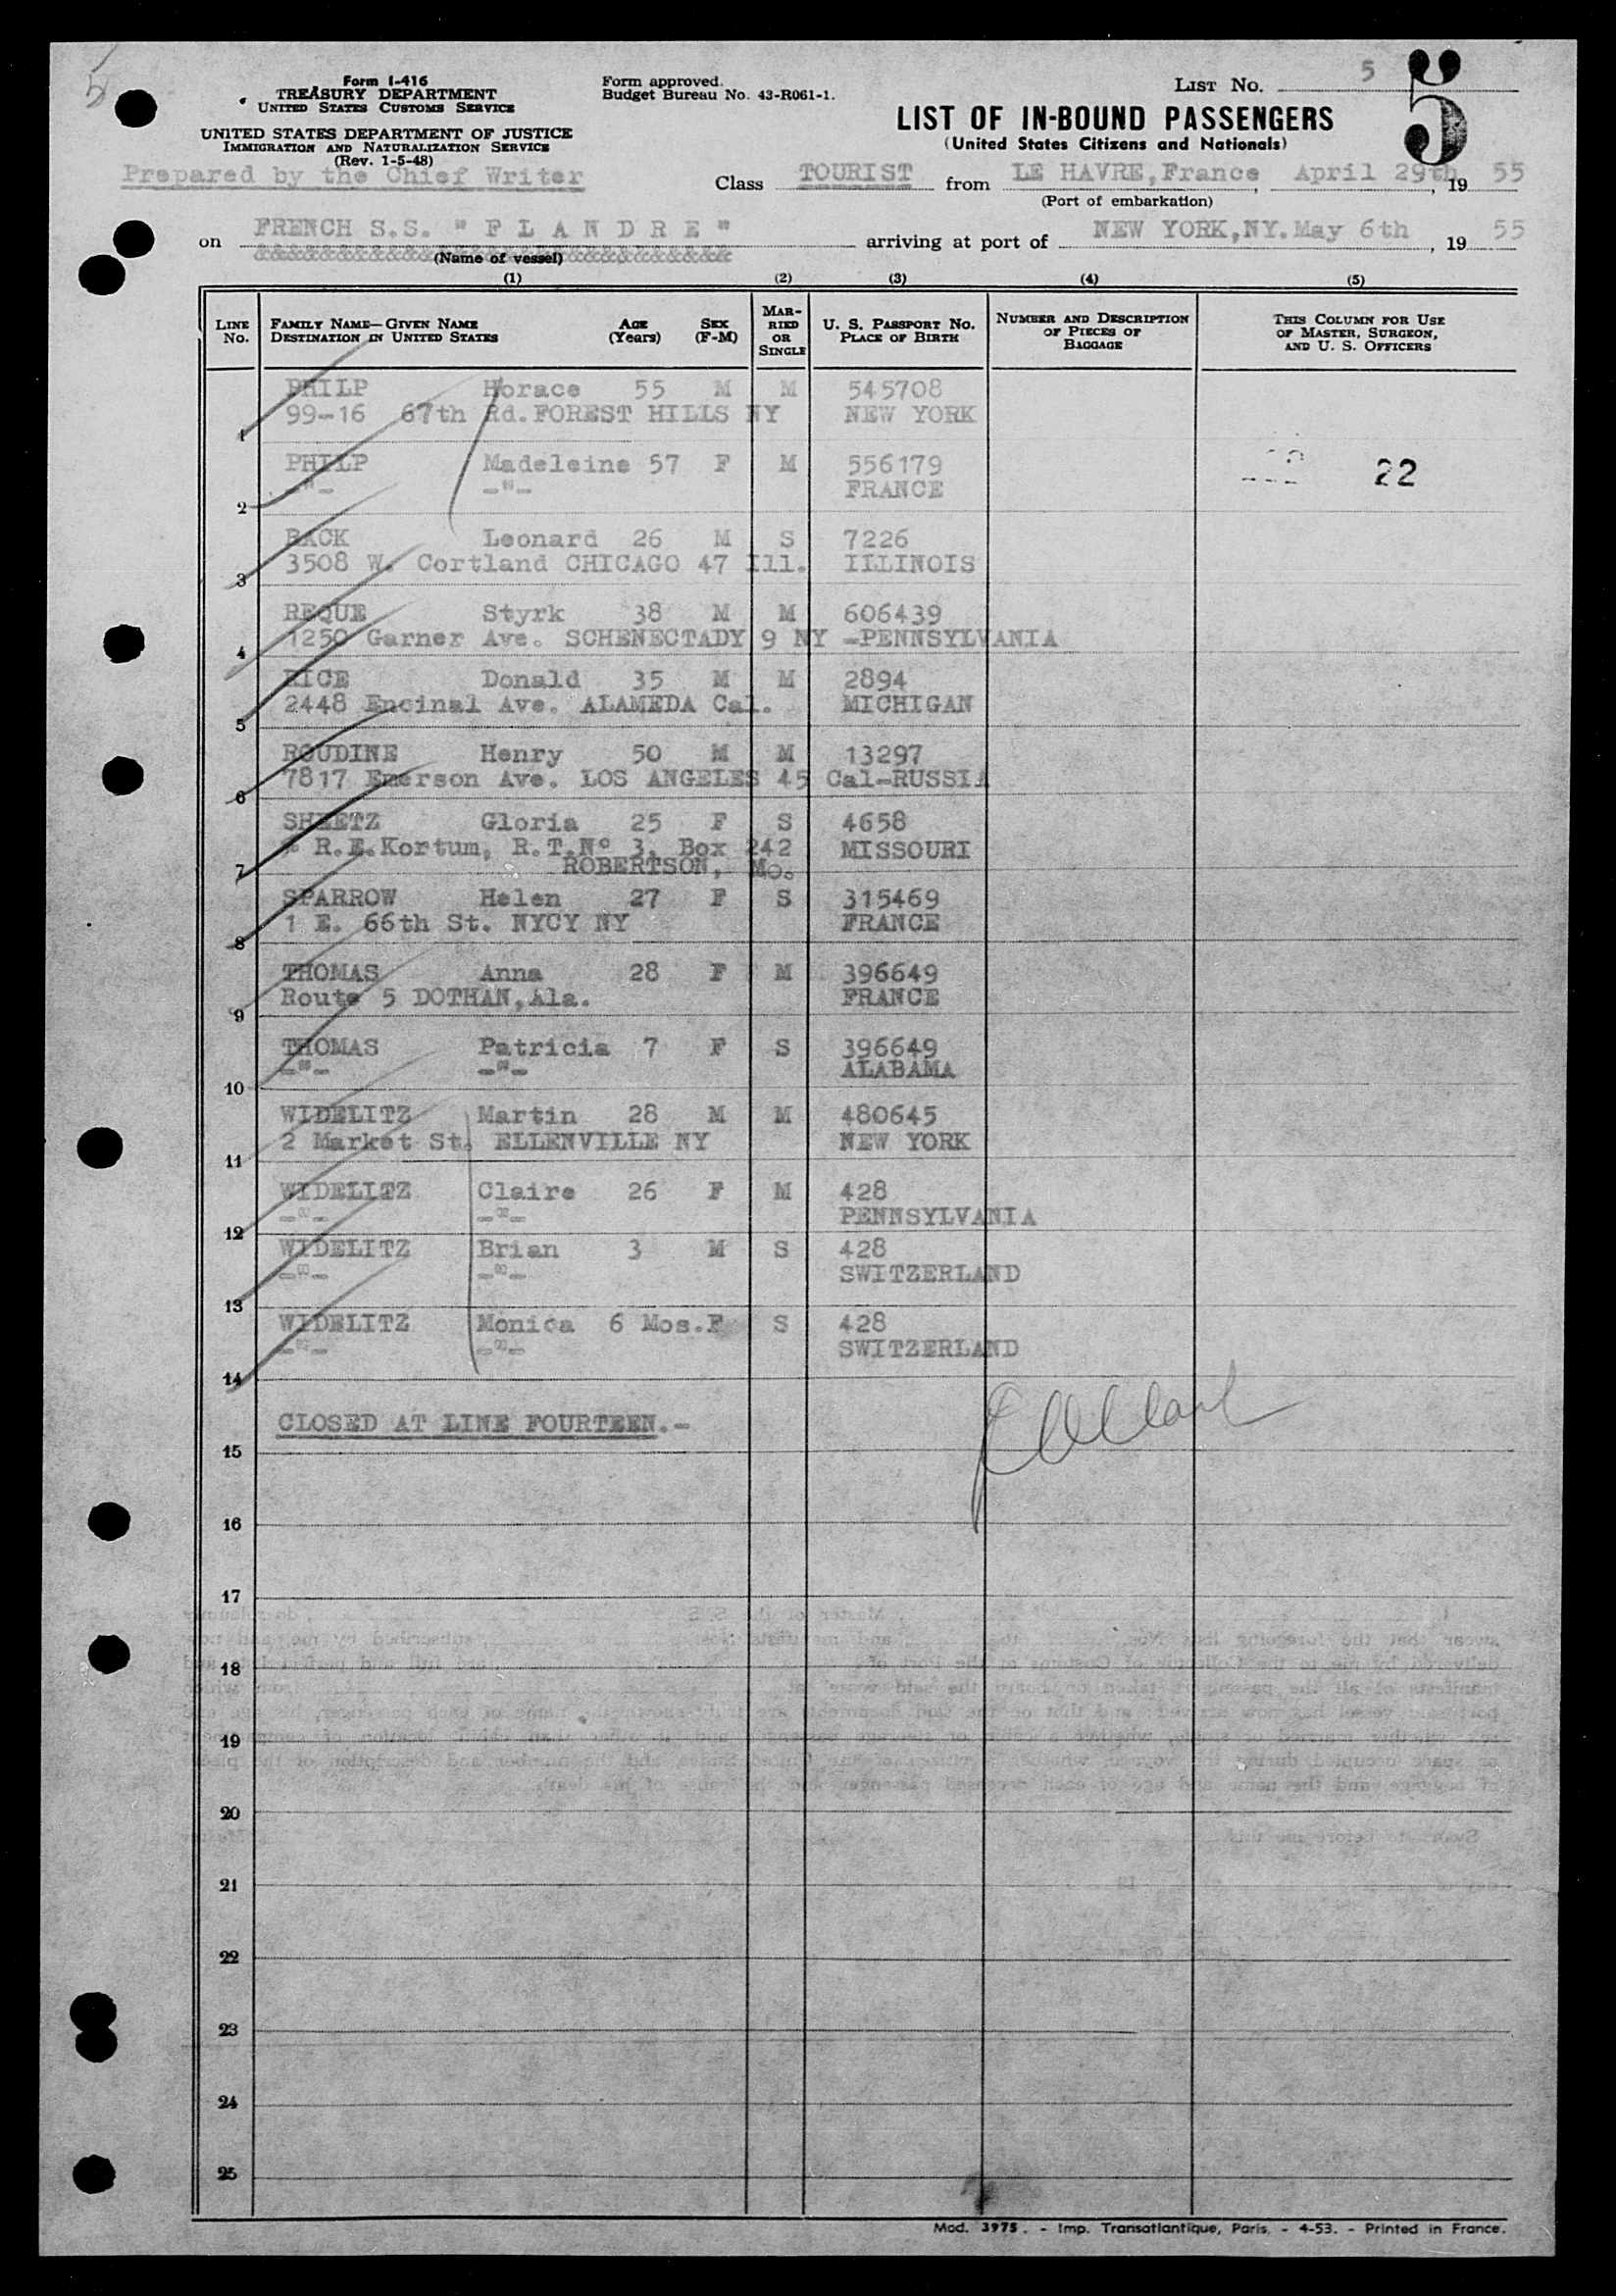 5
Form I-416
TREASURY DEPARTMENT
UNITED STATES CUSTOMS SERVICE
UNITED STATES DEPARTMENT OF JUSTICE
IMMIGRATION AND NATURALIZATION SERVICE
(Rev. 1-5-48)
Form approved.
Budget Bureau No. 43-R061-1.
LIST NO. 5
5
LIST OF IN-BOUND PASSENGERS
(United States Citizens and Nationals)
Prepared by the Chief Writer
Class TOURIST from LE HAVRE, France, April 29th, 19 55
(Port of embarkation)
on FRENCH S.S. "F L A N D R E" arriving at port of NEW YORK,NY. May 6th, 19 55
(Name of vessel)
(1) (2) (3) (4) (5)
LINE NO. FAMILY NAME—GIVEN NAME DESTINATION IN UNITED STATES AGE (Years) SEX (F-M) MARRIED OR SINGLE U. S. PASSPORT NO. PLACE OF BIRTH NUMBER AND DESCRIPTION OF PIECES OF BAGGAGE THIS COLUMN FOR USE OF MASTER, SURGEON, AND U. S. OFFICERS
PHILP Horace 55 M M 545708
1 99-16 67th Rd. FOREST HILLS NY NEW YORK
PHILP Madeleine 57 F M 556179
22
2 -"- -"- FRANCE
RACK Leonard 26 M S 7226
3 3508 W. Cortland CHICAGO 47 Ill. ILLINOIS
REQUE Styrk 38 M M 606439
4 1250 Garner Ave. SCHENECTADY 9 NY -PENNSYLVANIA
RICE Donald 35 M M 2894
5 2448 Encinal Ave. ALAMEDA Cal. MICHIGAN
ROUDINE Henry 50 M M 13297
6 7817 Emerson Ave. LOS ANGELES 45 Cal-RUSSIA
SHEETZ Gloria 25 F S 4658
7 % R.E.Kortum, R.T.N° 3, Box 242 MISSOURI
ROBERTSON, Mo.
SPARROW Helen 27 F S 315469
8 1 E. 66th St. NYCY NY FRANCE
THOMAS Anna 28 F M 396649
9 Route 5 DOTHAN, Ala. FRANCE
THOMAS Patricia 7 F S 396649
10 -"- -"- ALABAMA
WIDELITZ Martin 28 M M 480645
11 2 Market St. ELLENVILLE NY NEW YORK
WIDELITZ Claire 26 F M 428
12 -"- -"- PENNSYLVANIA
WIDELITZ Brian 3 M S 428
13 -"- -"- SWITZERLAND
WIDELITZ Monica 6 Mos. F S 428
14 -"- -"- SWITZERLAND
CLOSED AT LINE FOURTEEN.-
15
16
17
18
19
20
21
22
23
24
25
Mod. 3975. - Imp. Transatlantique, Paris. - 4-53. - Printed in France.